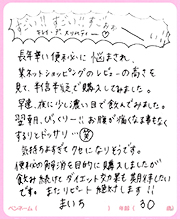 すごい!! すごい!! すごぉぉ
い!!
長年辛い便秘に悩まされ、
某ネットショッピングのレビューの高さを
見て、半信半疑で購入してみました。
早速、夜に少し濃い目で飲んでみました。
翌朝、びっくりー!! お腹が痛くなる事もなく
するりとドッサリ…(笑)
気持ちよすぎてクセになりそうです。
便秘の解消を目的に購入しましたが
飲み続けてダイエット効果も期待したい
です。またリピート絶対します!!
ペンネーム
まいち
年齢
30
歳